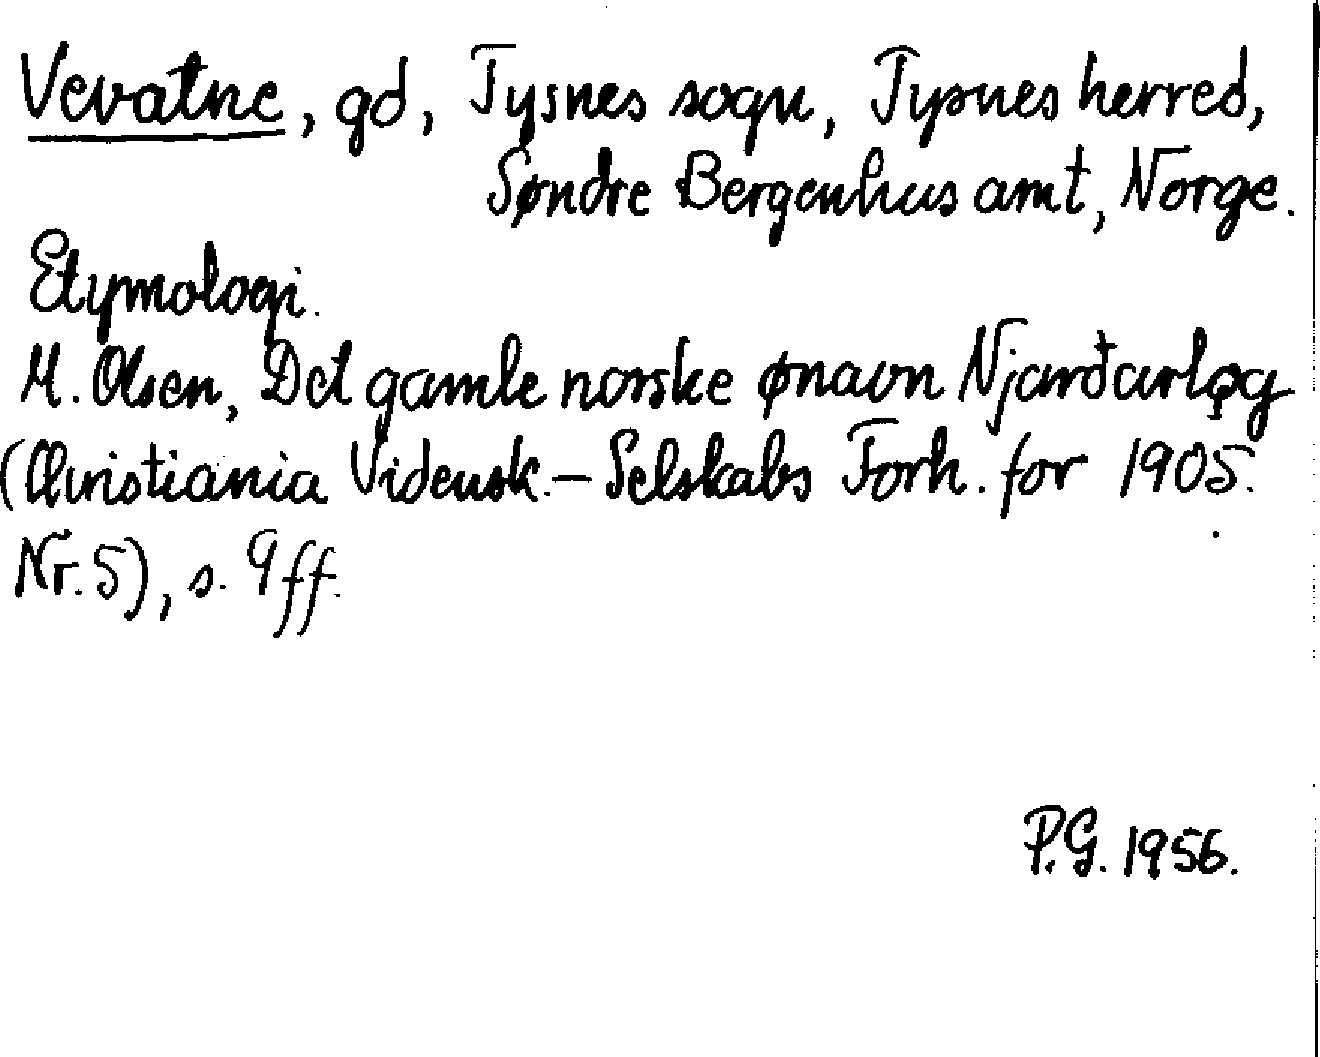 Vevatne, gd, Tysnes sogn, Tysnes herred,
Søndre Bergenhus amt, Norge.
Etymologi.
M. Olsen, Det gamle norske ønavn Njarðarlǫg
(Christiania Vidensk.-Selskabs Forh. for 1905.
Nr. 5), s. 9ff.
P.G. 1956.